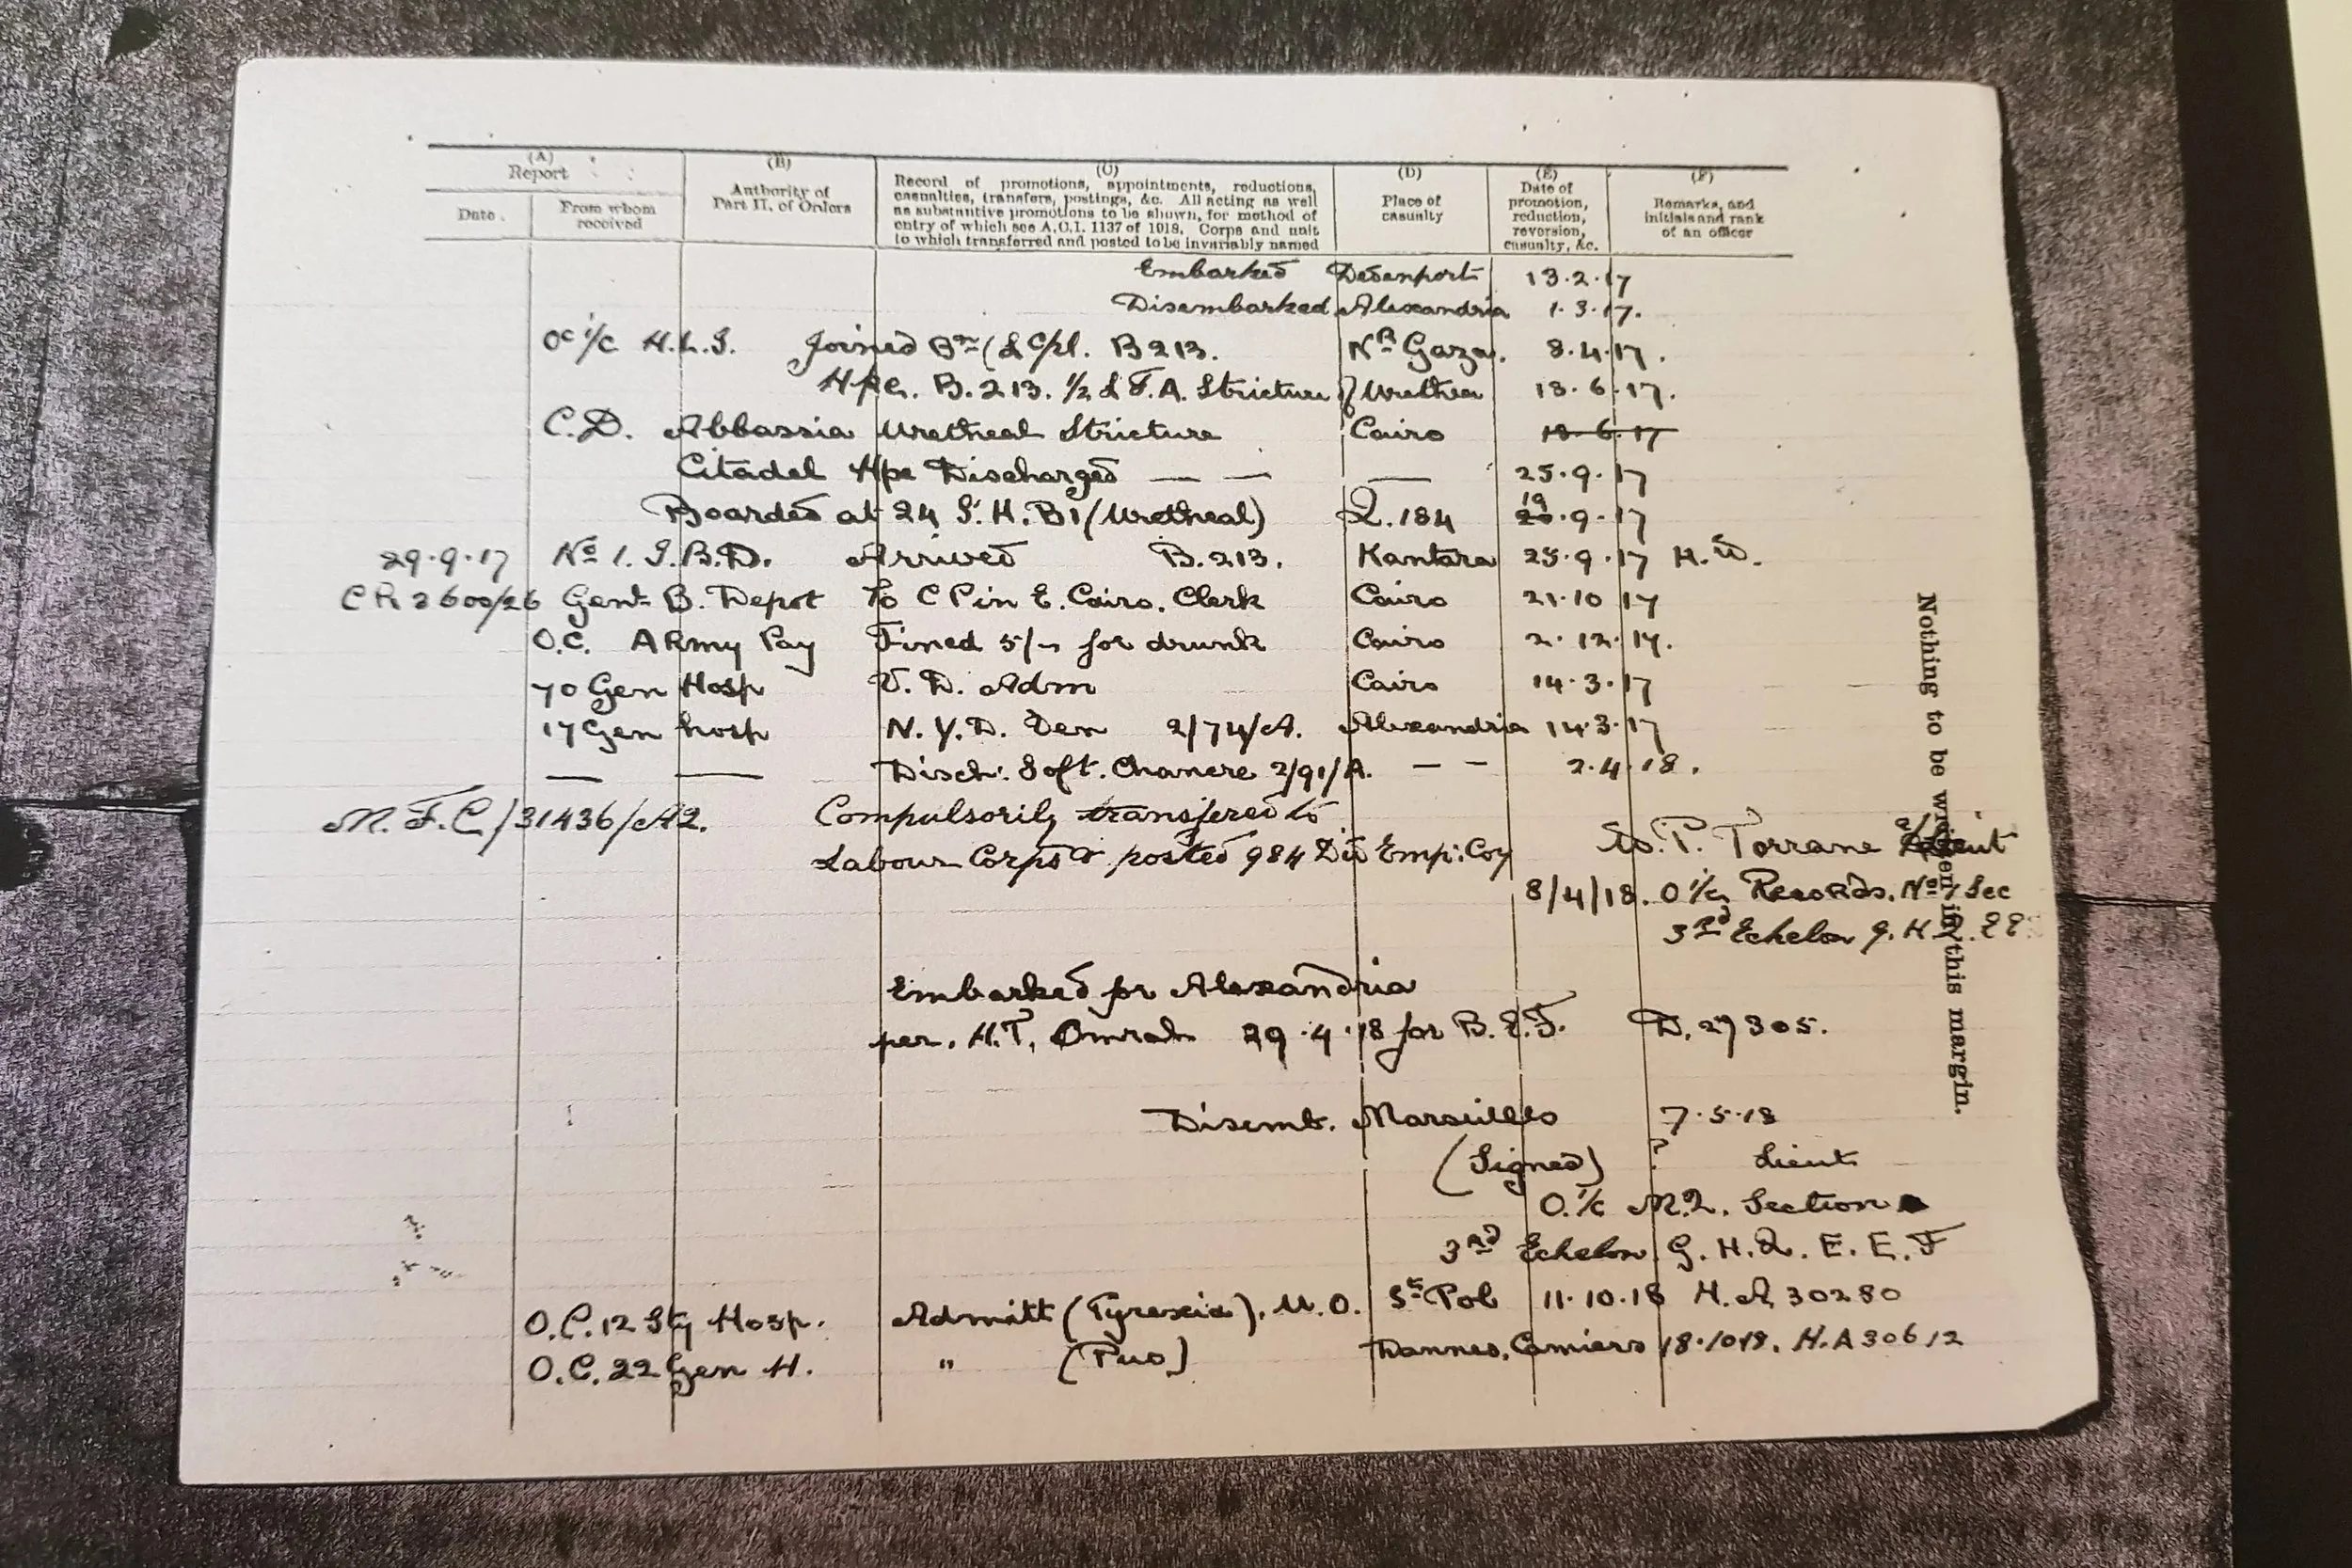 (A) Report
Date.
From whom received
(B)
Authority of Part II. of Orders
(C)
Record of promotions, appointments, reductions,
casualties, transfers, postings, &c. All acting as well
as substantive promotions to be shown, for method of
entry of which see A.C.I. 1137 of 1918. Corps and unit
to which transferred and posted to be invariably named
(D)
Place of casualty
(E)
Date of promotion, reduction, reversion, casualty, &c.
(F)
Remarks, and initials and rank of an officer
Embarked Devonport 13.2.17
Disembarked Alexandria 1.3.17.
Oc i/c H.L.I. Joined Bn (L Cpl. B213. Nr Gaza. 8.4.17.
B.213. 1/2 L F.A. Stricture of Urethra 13.6.17.
C.D. Abbassia Uretheal Stricture Cairo 18.6.17
Citadel Discharged — — — 25.9.17
Boarded at 24 S.H. B1 (Uretheal) Q.184 19.9.17
29.9.17 No 1. I.B.D. Arrived B.213. Kantara 25.9.17 H.W.
CR2600/26 Genl B. Depot To C P in E. Cairo. Clerk Cairo 21.10 17
O.C. Army Pay Fined 5/- for drunk Cairo 2.12.17.
70 Gen Hosp V.D. Adm Cairo 14.3.17
17 Gen hosp N.Y.D. Ven 2/74/A. Alexandria 14.3.17
— — Disch: Soft. Chancre 2/91/A. — — 2.4.18.
M.F.C/31436/A2. Compulsorily transfered to
Labour Corps & posted 984 Div Emp: Coy W.P. Torrane Lieut
8/4/18. O i/c Records, No 1 Sec
3rd Echelon G.H.Q. EE
Embarked for Alexandria
per. H.T. Omrah 29.4.18 for B.E.F. D.27305.
Disemb. Marseilles 7.5.18
(Signed) ? Lieut
O. i/c M.2. Section
3rd Echelon G.H.Q. E.E.F
O.C. 12 Sty Hosp. Admitt (Pyrexia). U.O. St Pol 11.10.18 H.A 30280
O.C. 22 Gen H. " (Puo) Dannes, Camiers 18.1018. H.A 30612
Nothing to be written in this margin.